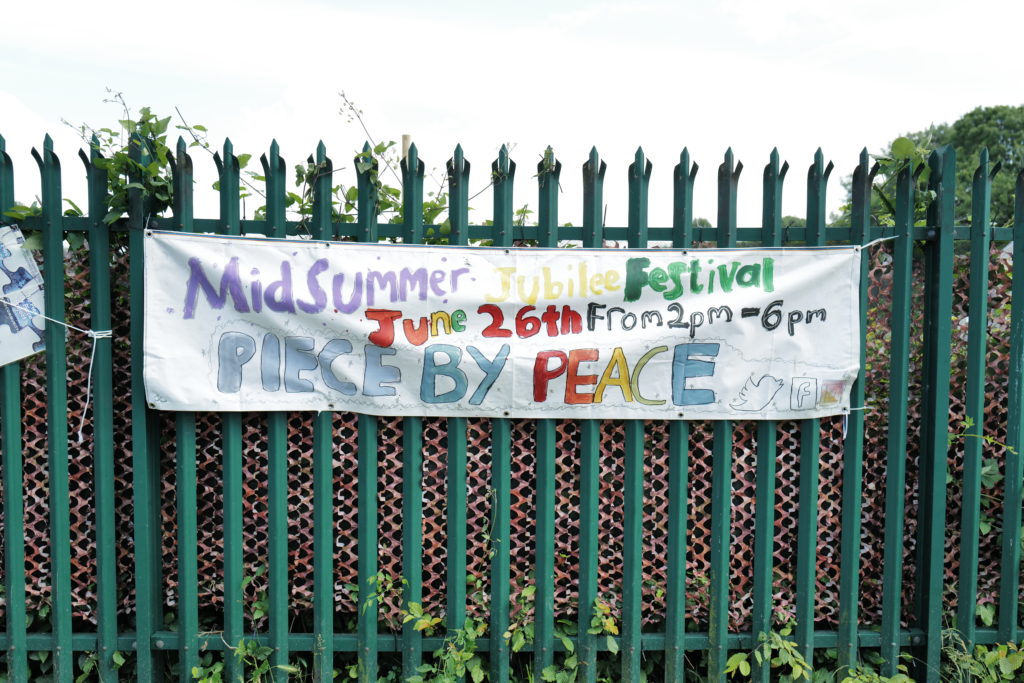 MidSummer Jubilee Festival
June 26th From 2pm - 6pm
PIECE BY PEACE
f